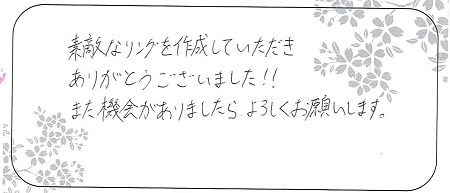 素敵なリングを作成していただき
ありがとうございました!!
また機会がありましたら、よろしくお願いします。